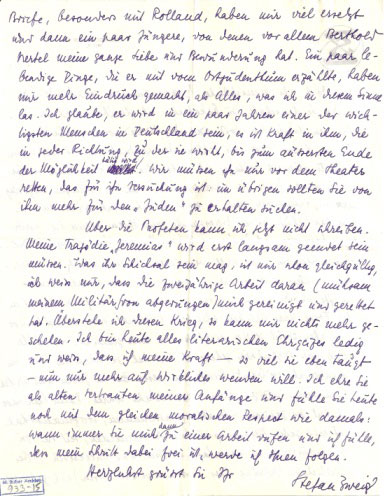 Briefe, besonders mit Rolland, haben mir viel ersetzt
und dann ein paar Jüngere, von denen vor allem Berthold
Viertel meine ganze Liebe und Bewunderung hat. Ein paar le-
bendige Dinge, die er mir vom Ostjudenthum erzählte, haben
mir mehr Eindruck gemacht, als Alles, was ich in diesem Sinne
las. Ich glaube, er wird in ein paar Jahren einer der wich-
tigsten Menschen in Deutschland sein, es ist Kraft in ihm, die
in jeder Richtung, zu der sie wirkt, bis zum äussersten Ende
der Möglichkeit wird. Wir müssen ihn nur vor dem Theater
retten, das für ihn Versuchung ist: im übrigen sollten Sie von
ihm mehr für den „Juden" zu erhalten suchen.
Über die Profeten kann ich jetzt nicht schreiben.
Meine Tragödie „Jeremias" wird erst langsam geendet sein
müssen. Was ihr Schicksal sein mag, ist mir schon gleichgültig,
ich weiss nur, dass die zweijährige Arbeit daran (mühsam
meinem Militärfron abgerungen) mich gereinigt und gerettet
hat. Überstehe ich diesen Krieg, so kann mir nichts mehr ge-
schehen. Ich bin heute alles literarischen Ehrgeizes ledig
und weiss, dass ich meine Kraft — so viel sie eben taugt
— nun nur mehr auf Wirkliches wenden will. Ich ehre Sie
als alten Vertrauten meiner Anfänge und fühle Sie heute
noch mit dem gleichen moralischen Respect wie damals:
wann immer Sie mich dann zu einer Arbeit rufen und ich fühle,
dass mein Schritt dabei frei ist, werde ich Ihnen folgen.
Herzlichst grüsst Sie Ihr
Stefan Zweig
933-15